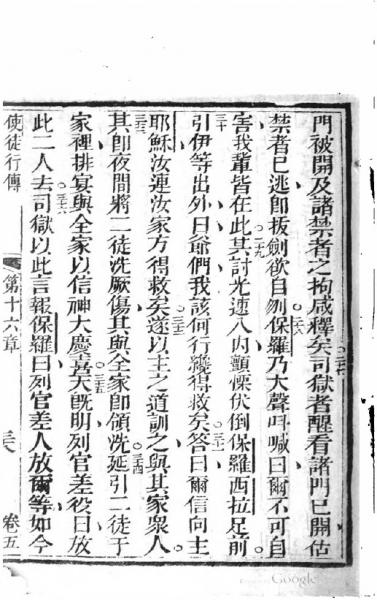 門被開及諸禁者之拘咸釋矣司獄者醒看諸門已開估
禁者已逃卽拔劍欲自刎保羅乃大聲呌喊曰爾不可自
害我輩皆在此其討光速入內顫慄伏倒保羅西拉足前
引伊等出外曰爺們我該何行纔得救矣答曰爾信向主
耶穌汝連汝家方得救矣遂以主之道訓之與其家衆人
其卽夜間將二徒洗厥傷其與全家卽領洗延引二徒于
家裡排宴與全家以信神大慶喜天旣明列官差役曰放
此二人去司獄以此言報保羅曰列官差人放爾等如今
使徒行傳 第十六章 卷五
Google